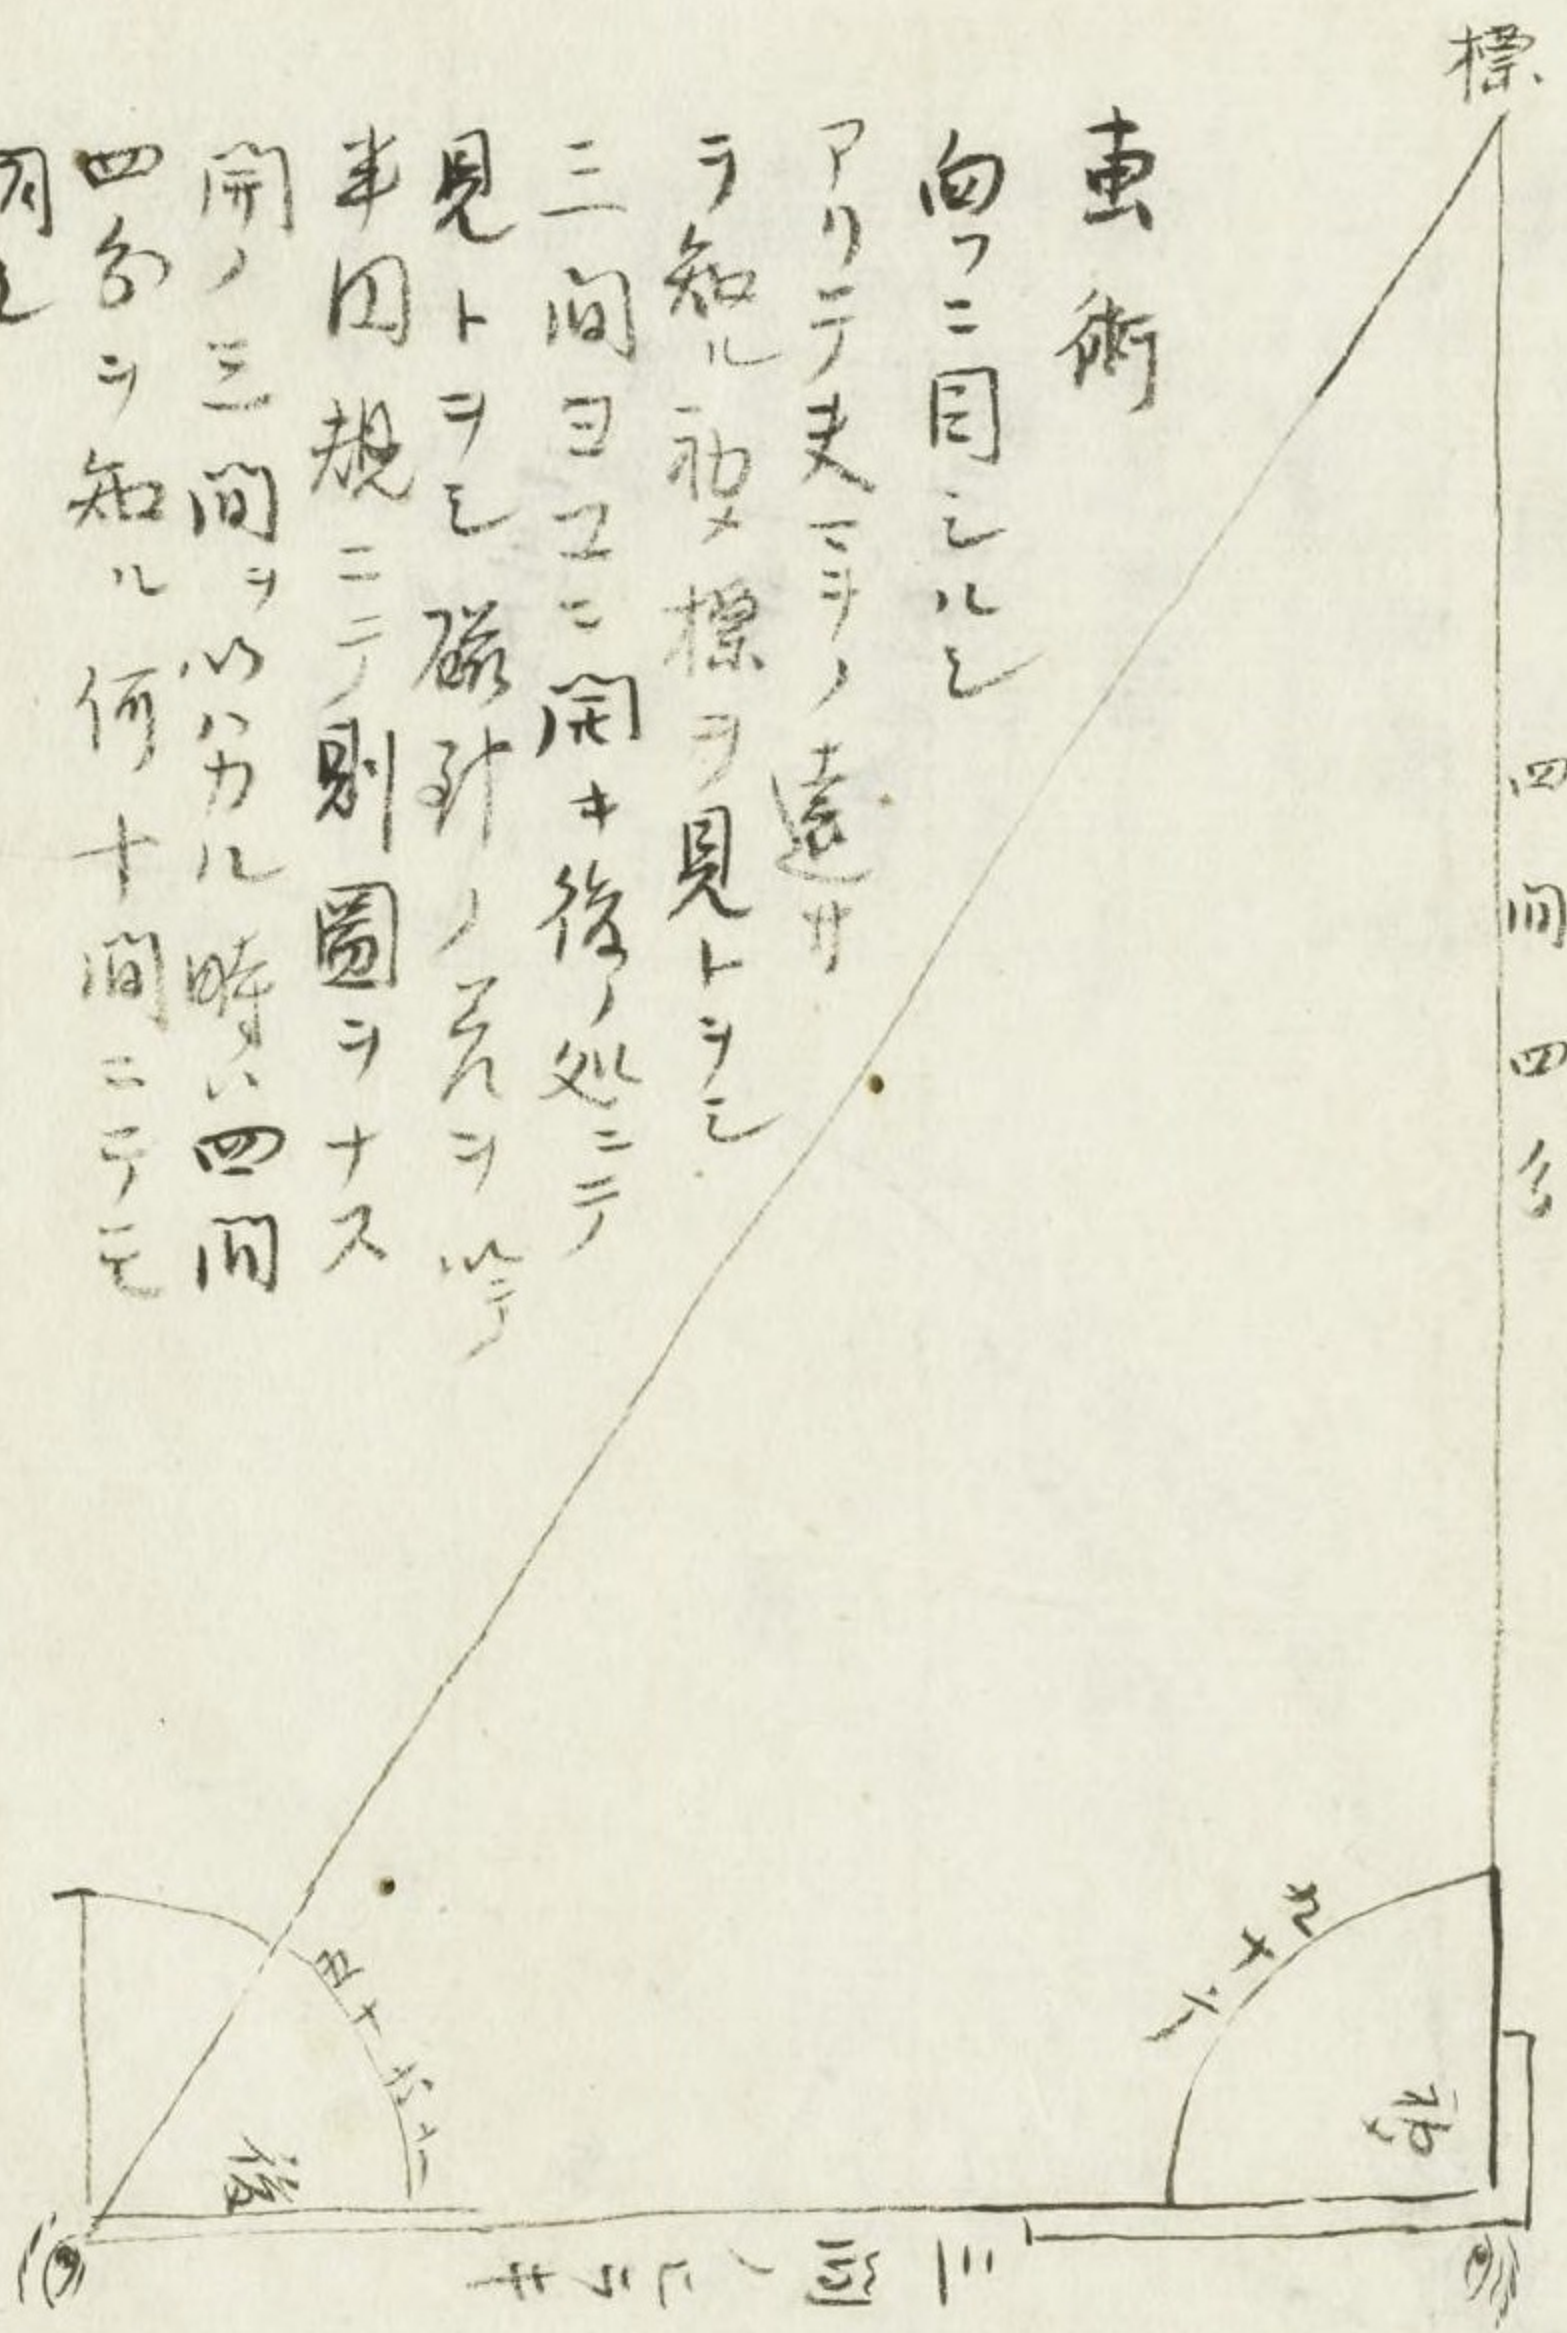 標
画術
向フニ目シルシ
アリテ夫マテノ遠サ
ヲ知ル初メ標ヲ見トヲシ
三間ヨコニ開キ後ノ処ニテ
見トヲシ磁針ノ差ヲ以テ
半円規ニテ則圖ヲナス
開ノ三間ヲ以ハカル時ハ四間
四分ヲ知ル何十間ニテモ
同シ
四間四分
九十六
初メ
五十六
後
三間ノヒラキ